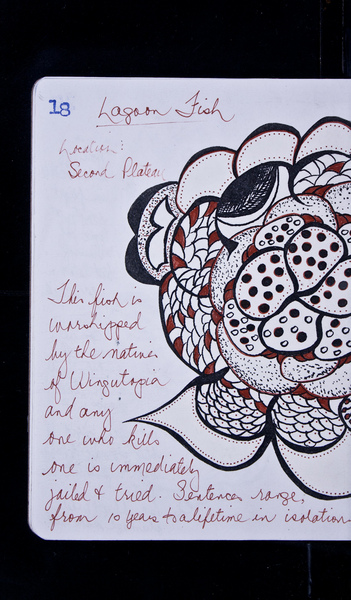 18
Lagoon Fish
Location:
Second Plateau
This fish is
worshipped
by the natives
of Wingutopia
and any
one who kills
one is immediately
jailed & tried. Sentences range,
from 10 years to a lifetime in isolation